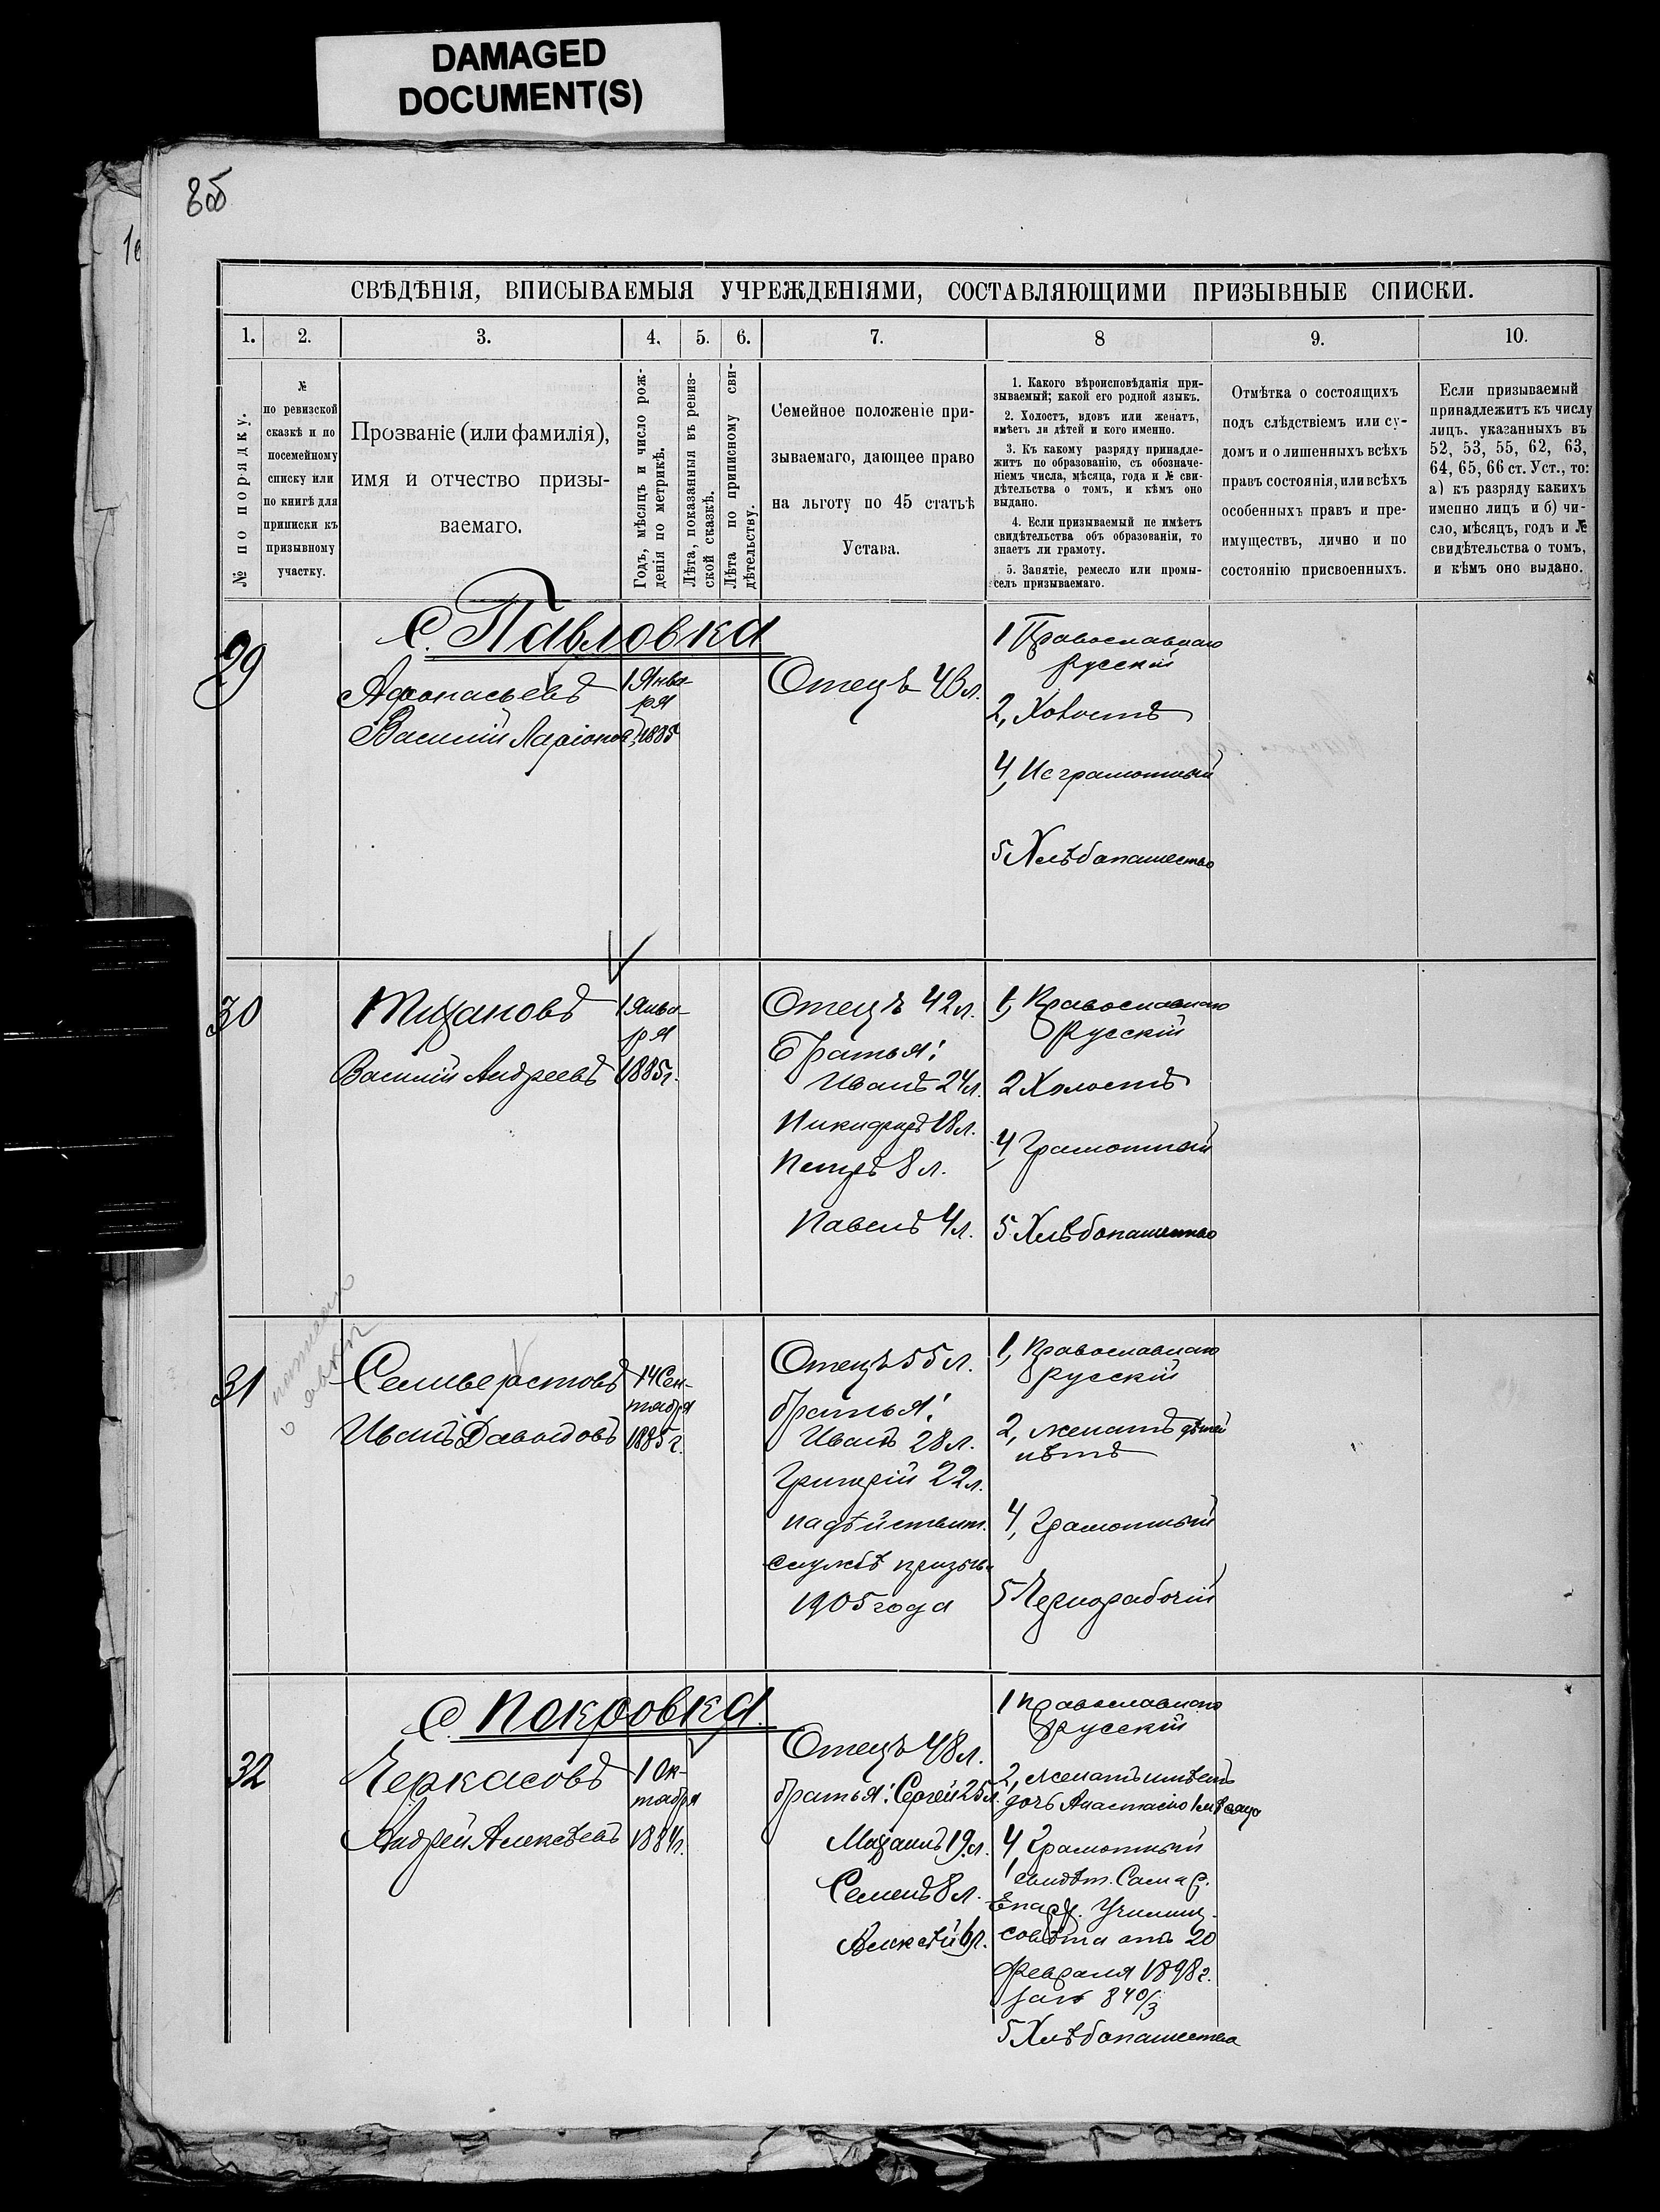 DAMAGED
DOCUMENT(S)
8об
СВѢДѢНІЯ, ВПИСЫВАЕМЫЯ УЧРЕЖДЕНІЯМИ, СОСТАВЛЯЮЩИМИ ПРИЗЫВНЫЕ СПИСКИ.
1. 2. 3. 4. 5. 6. 7. 8 9. 10.
№ по порядку.
№
по ревизской
сказкѣ и по
посемейному
списку или
по книгѣ для
приписки къ
призывному
участку.
Прозваніе (или фамилія),
имя и отчество призы-
ваемаго.
Годъ, мѣсяцъ и число рож-
денія по метрикѣ.
Лѣта, показанныя въ ревиз-
ской сказкѣ.
Лѣта по приписному сви-
дѣтельству.
Семейное положеніе при-
зываемаго, дающее право
на льготу по 45 статьѣ
Устава.
1. Какого вѣроисповѣданія при-
зываемый; какой его родной языкъ.
2. Холостъ, вдовъ или женатъ,
имѣетъ ли дѣтей и кого именно.
3. Къ какому разряду принадле-
житъ по образованію, съ обозначе-
ніемъ числа, мѣсяца, года и № сви-
дѣтельства о томъ, и кѣмъ оно
выдано.
4. Если призываемый не имѣетъ
свидѣтельства объ образованіи, то
знаетъ ли грамоту.
5. Занятіе, ремесло или промы-
селъ призываемаго.
Отмѣтка о состоящихъ
подъ слѣдствіемъ или су-
домъ и о лишенныхъ всѣхъ
правъ состоянія, или всѣхъ
особенныхъ правъ и пре-
имуществъ, лично и по
состоянію присвоенныхъ.
Если призываемый
принадлежитъ къ числу
лицъ, указанныхъ въ
52, 53, 55, 62, 63,
64, 65, 66 ст. Уст., то:
а) къ разряду какихъ
именно лицъ и б) чи-
сло, мѣсяцъ, годъ и №
свидѣтельства о томъ,
и кѣмъ оно выдано.
с. Павловка
29
Афонасьевъ
Василій Ларіоновъ
1 Янва-
ря
1885
Отецъ 43 л.
1 Православнаго
русскій
2, Холостъ
4, Неграмотный
5 Хлѣбопашество
30
Василій Андреевъ
1 Янва-
ря
1885 г.
Отецъ 42 л.
Братья:
Иванъ 24 л.
Никифоръ 18 л.
Петръ 8 л.
Павелъ 4 л.
1, Православнаго
Русскій
2 Холостъ
4, Грамотный
5 Хлѣбопашество
31
Селиверстовъ
Иванъ Давыдовъ
14 Сен-
тября
1885 г.
Отецъ 55 л.
братья:
Иванъ 28 л.
Григорій 22 л.
на дѣйствит.
службѣ призыва
1905 года
1, Православнаго
русскій
2, женатъ дѣтей
нѣтъ
4, Грамотный
5 Чернорабочій
с. Покровка
32
Черкасовъ
Андрей Алексѣевъ
1 Ок-
тября
1884 г.
Отецъ 48 л.
братья: Сергей 25 л.
19 л.
Семенъ 8 л.
Алексѣй 6 л.
1 Православнаго
русскій
2, женатъ имѣетъ
дочь Анастасію 1 мѣсяца
4 Грамотный
свидѣт. Самар.
Епарх. Училищ.
совѣта отъ 20
февраля 1898 г.
за № 840/3
5 Хлѣбопашество